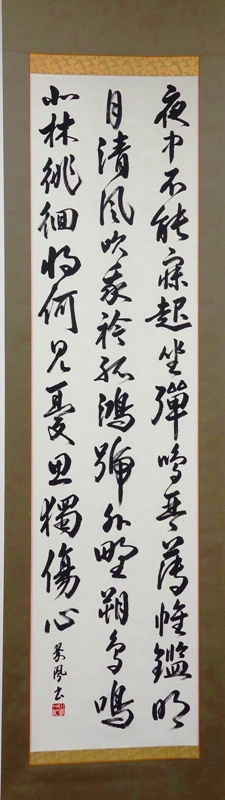 夜中不能寐起坐弾鳴琴薄帷鑑明
月清風吹我衿孤鴻號外野朔鳥鳴
北林徘徊将何見憂思獨傷心